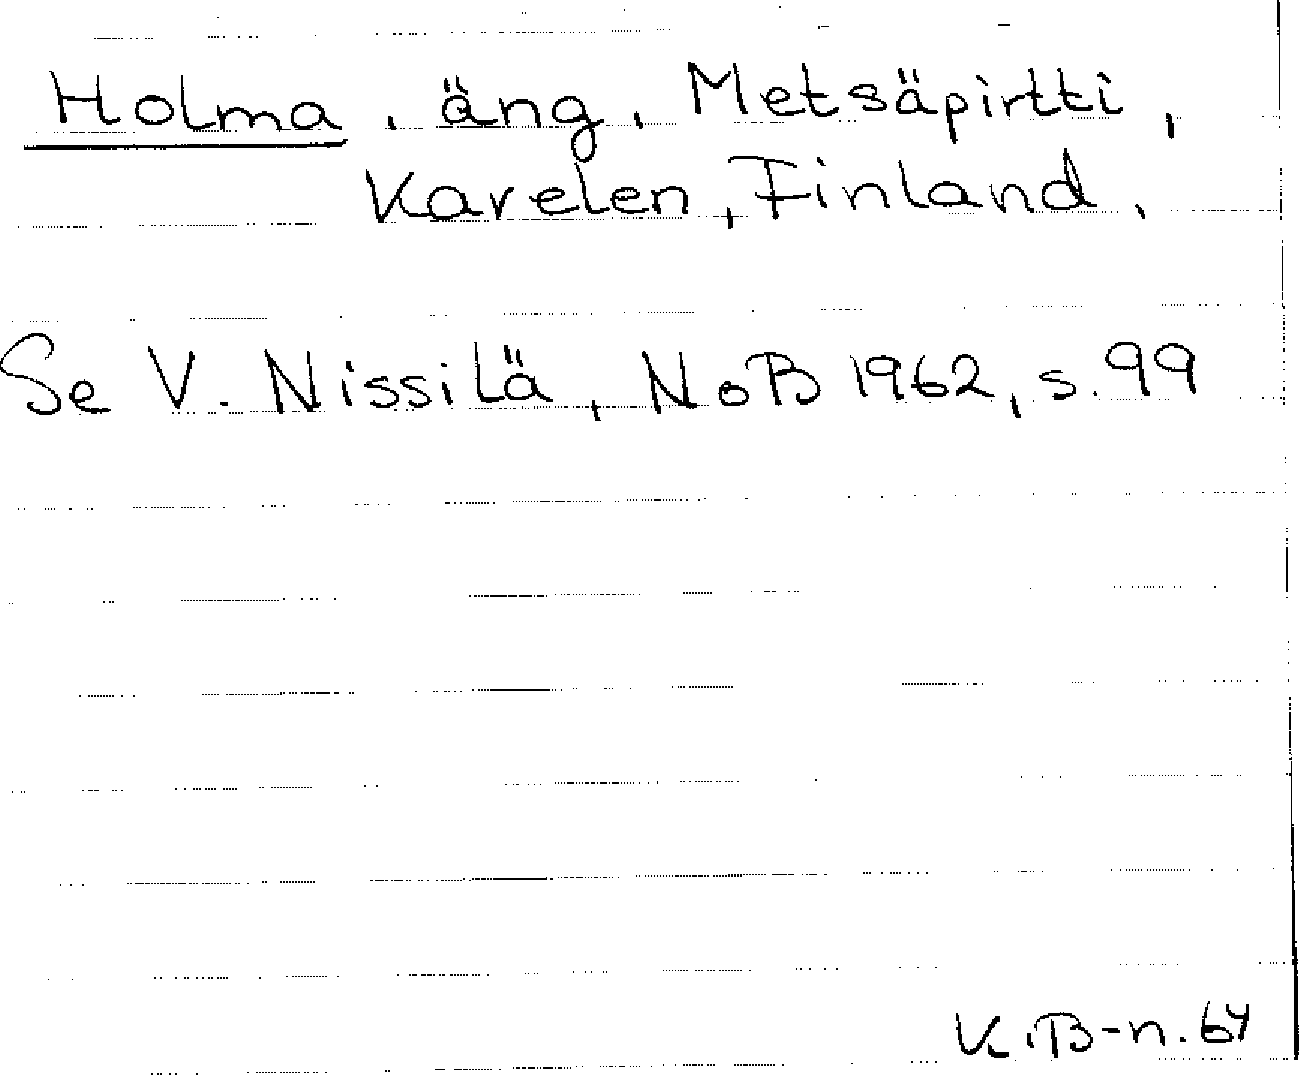 Holma, äng, Metsäpirtti,
Karelen, Finland.
Se V. Nissilä, NoB 1962, s. 99
K.B-n. 64